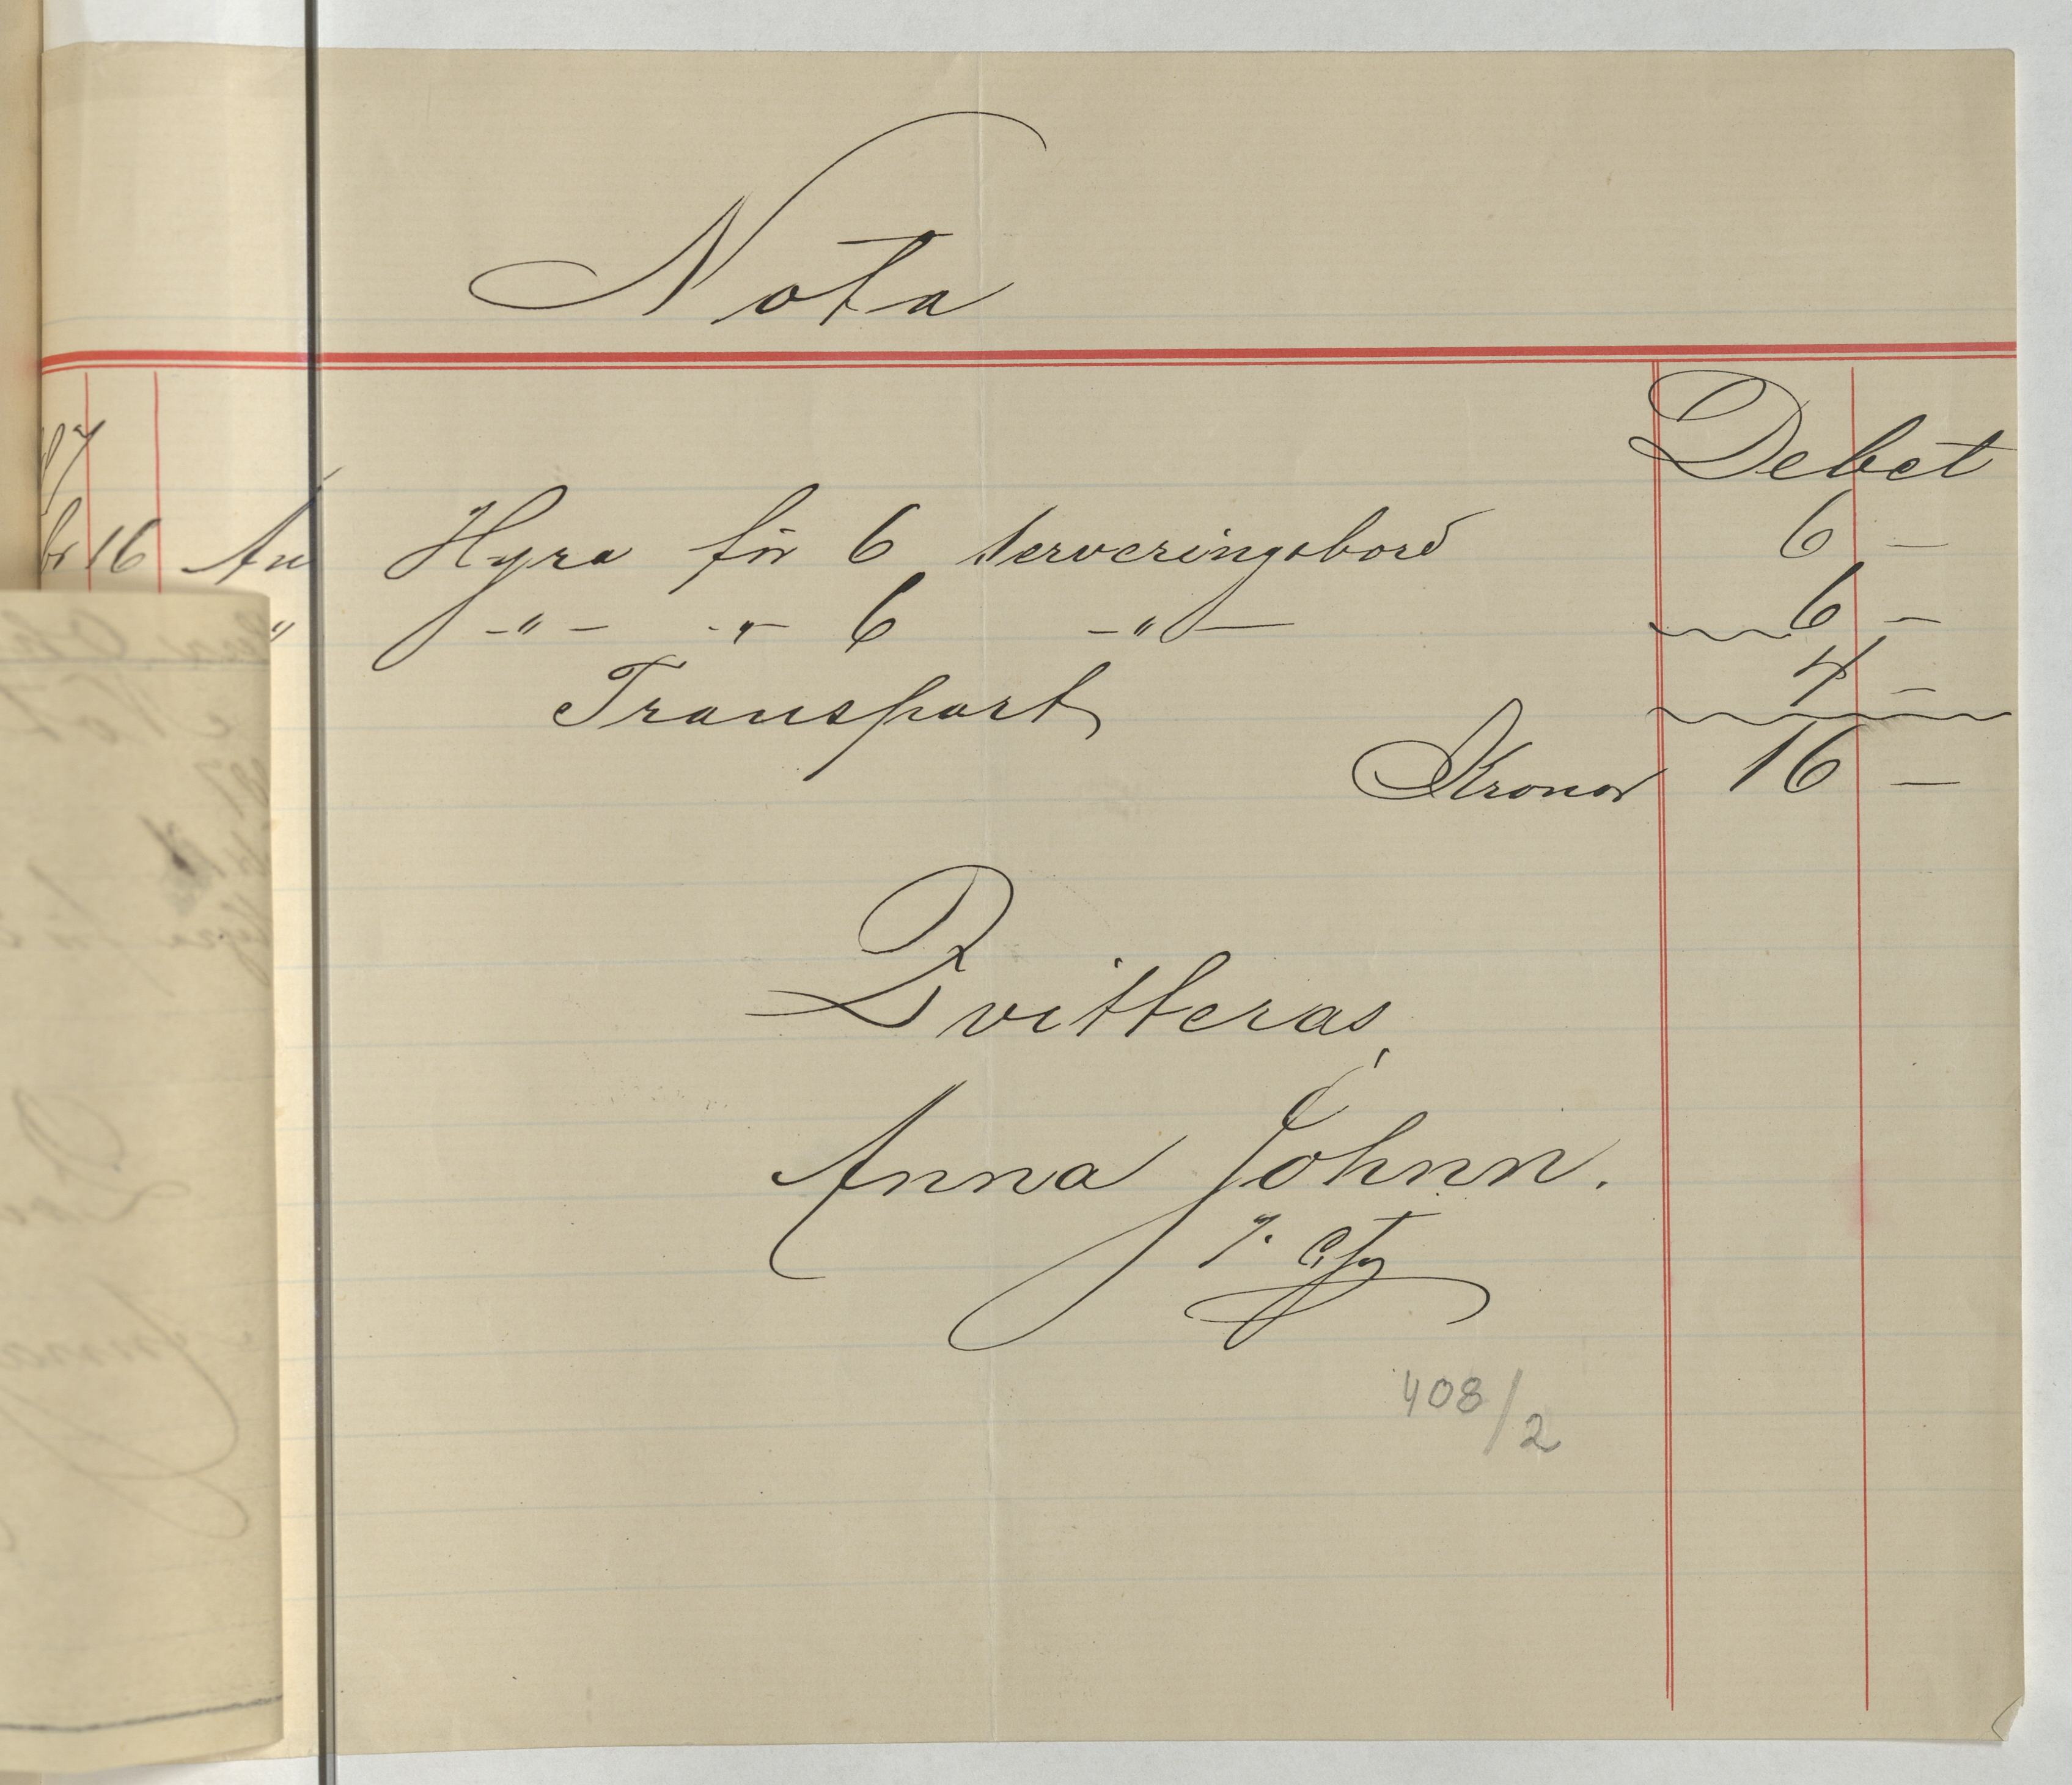 Nota
Debet
97
br 16 An Hyra för 6 serveringsbord 6 —
" — " — - " - 6 — " — 6 —
Transport 4 —
Kronor 16 —
Qvitteras,
Anna Johnn.
408/2